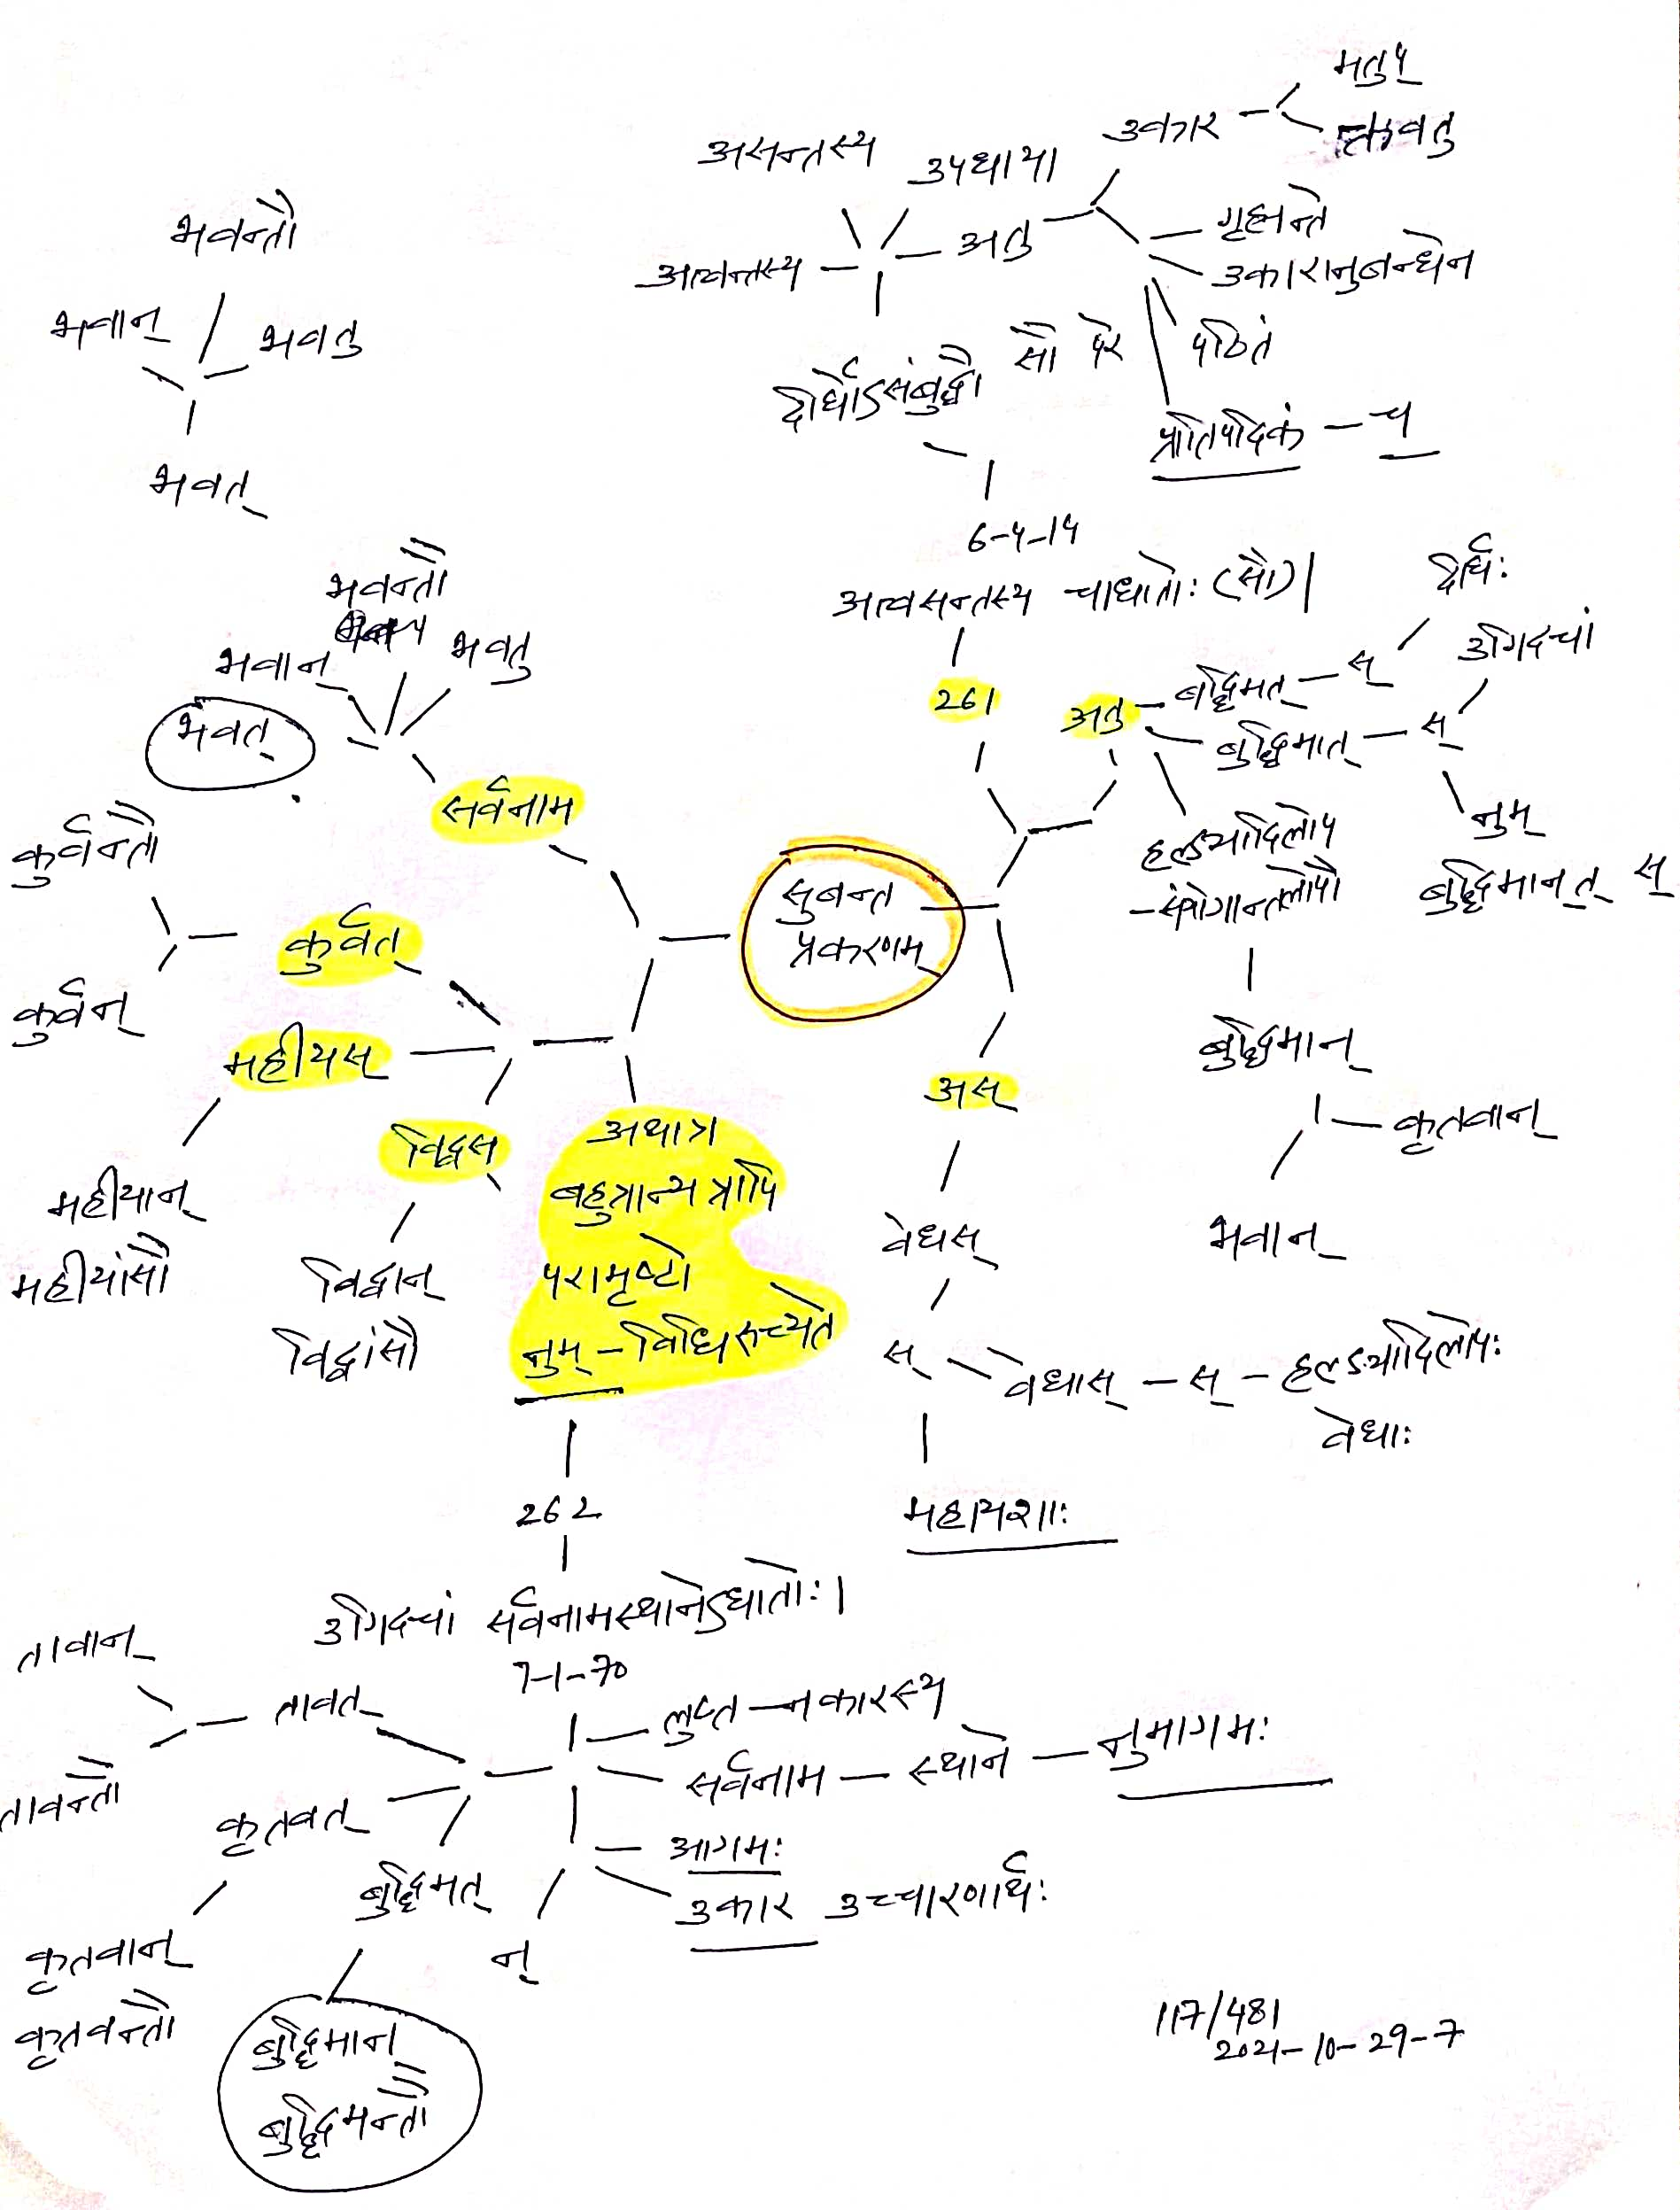 मतुप्
उकार
क्तवतु
असन्तस्य
उपधाया
भवन्तौ
गृह्यन्ते
अतु
अत्वन्तस्य
उकारानुबन्धेन
भवान्
भवतु
सौ परे
पठितं
दीर्घोऽसंबुद्धौ
प्रातिपदिकं — च
भवत्
6-4-14
अत्वसन्तस्य चाधातोः (सौ)|
दीर्घः
भवन्तौ
भवान्
भवतु
उगिदचां
261
अतु
बुद्धिमत् — स्
भवत्
बुद्धिमात् — स्
सर्वनाम
नुम्
कुर्वन्तौ
हल्ङ्यादिलोप
-संयोगान्तलोपौ
बुद्धिमान्त् स्
सुबन्त
प्रकरणम्
कुर्वत्
कुर्वन्
महीयस्
बुद्धिमान्
अस्
विद्वस्
अथात्र
कृतवान्
बहुत्रान्यत्रापि
महीयान्
महीयांसौ
वेधस्
भवान्
परामृष्टो
विद्वान्
विद्वांसौ
नुम् - विधिरुच्यते
स्
वेधास् — स् — हल्ङ्यादिलोपः
वेधाः
262
महायशाः
उगिदचां सर्वनामस्थानेऽधातोः|
7-1-70
तावान्
तावत्
लुप्त — नकारस्य
सर्वनाम — स्थाने — नुमागमः
तावन्तौ
कृतवत्
आगमः
बुद्धिमत्
उकार उच्चारणार्थः
न्
कृतवान्
कृतवन्तौ
बुद्धिमान्
बुद्धिमन्तौ
117/481
2021-10-29-7